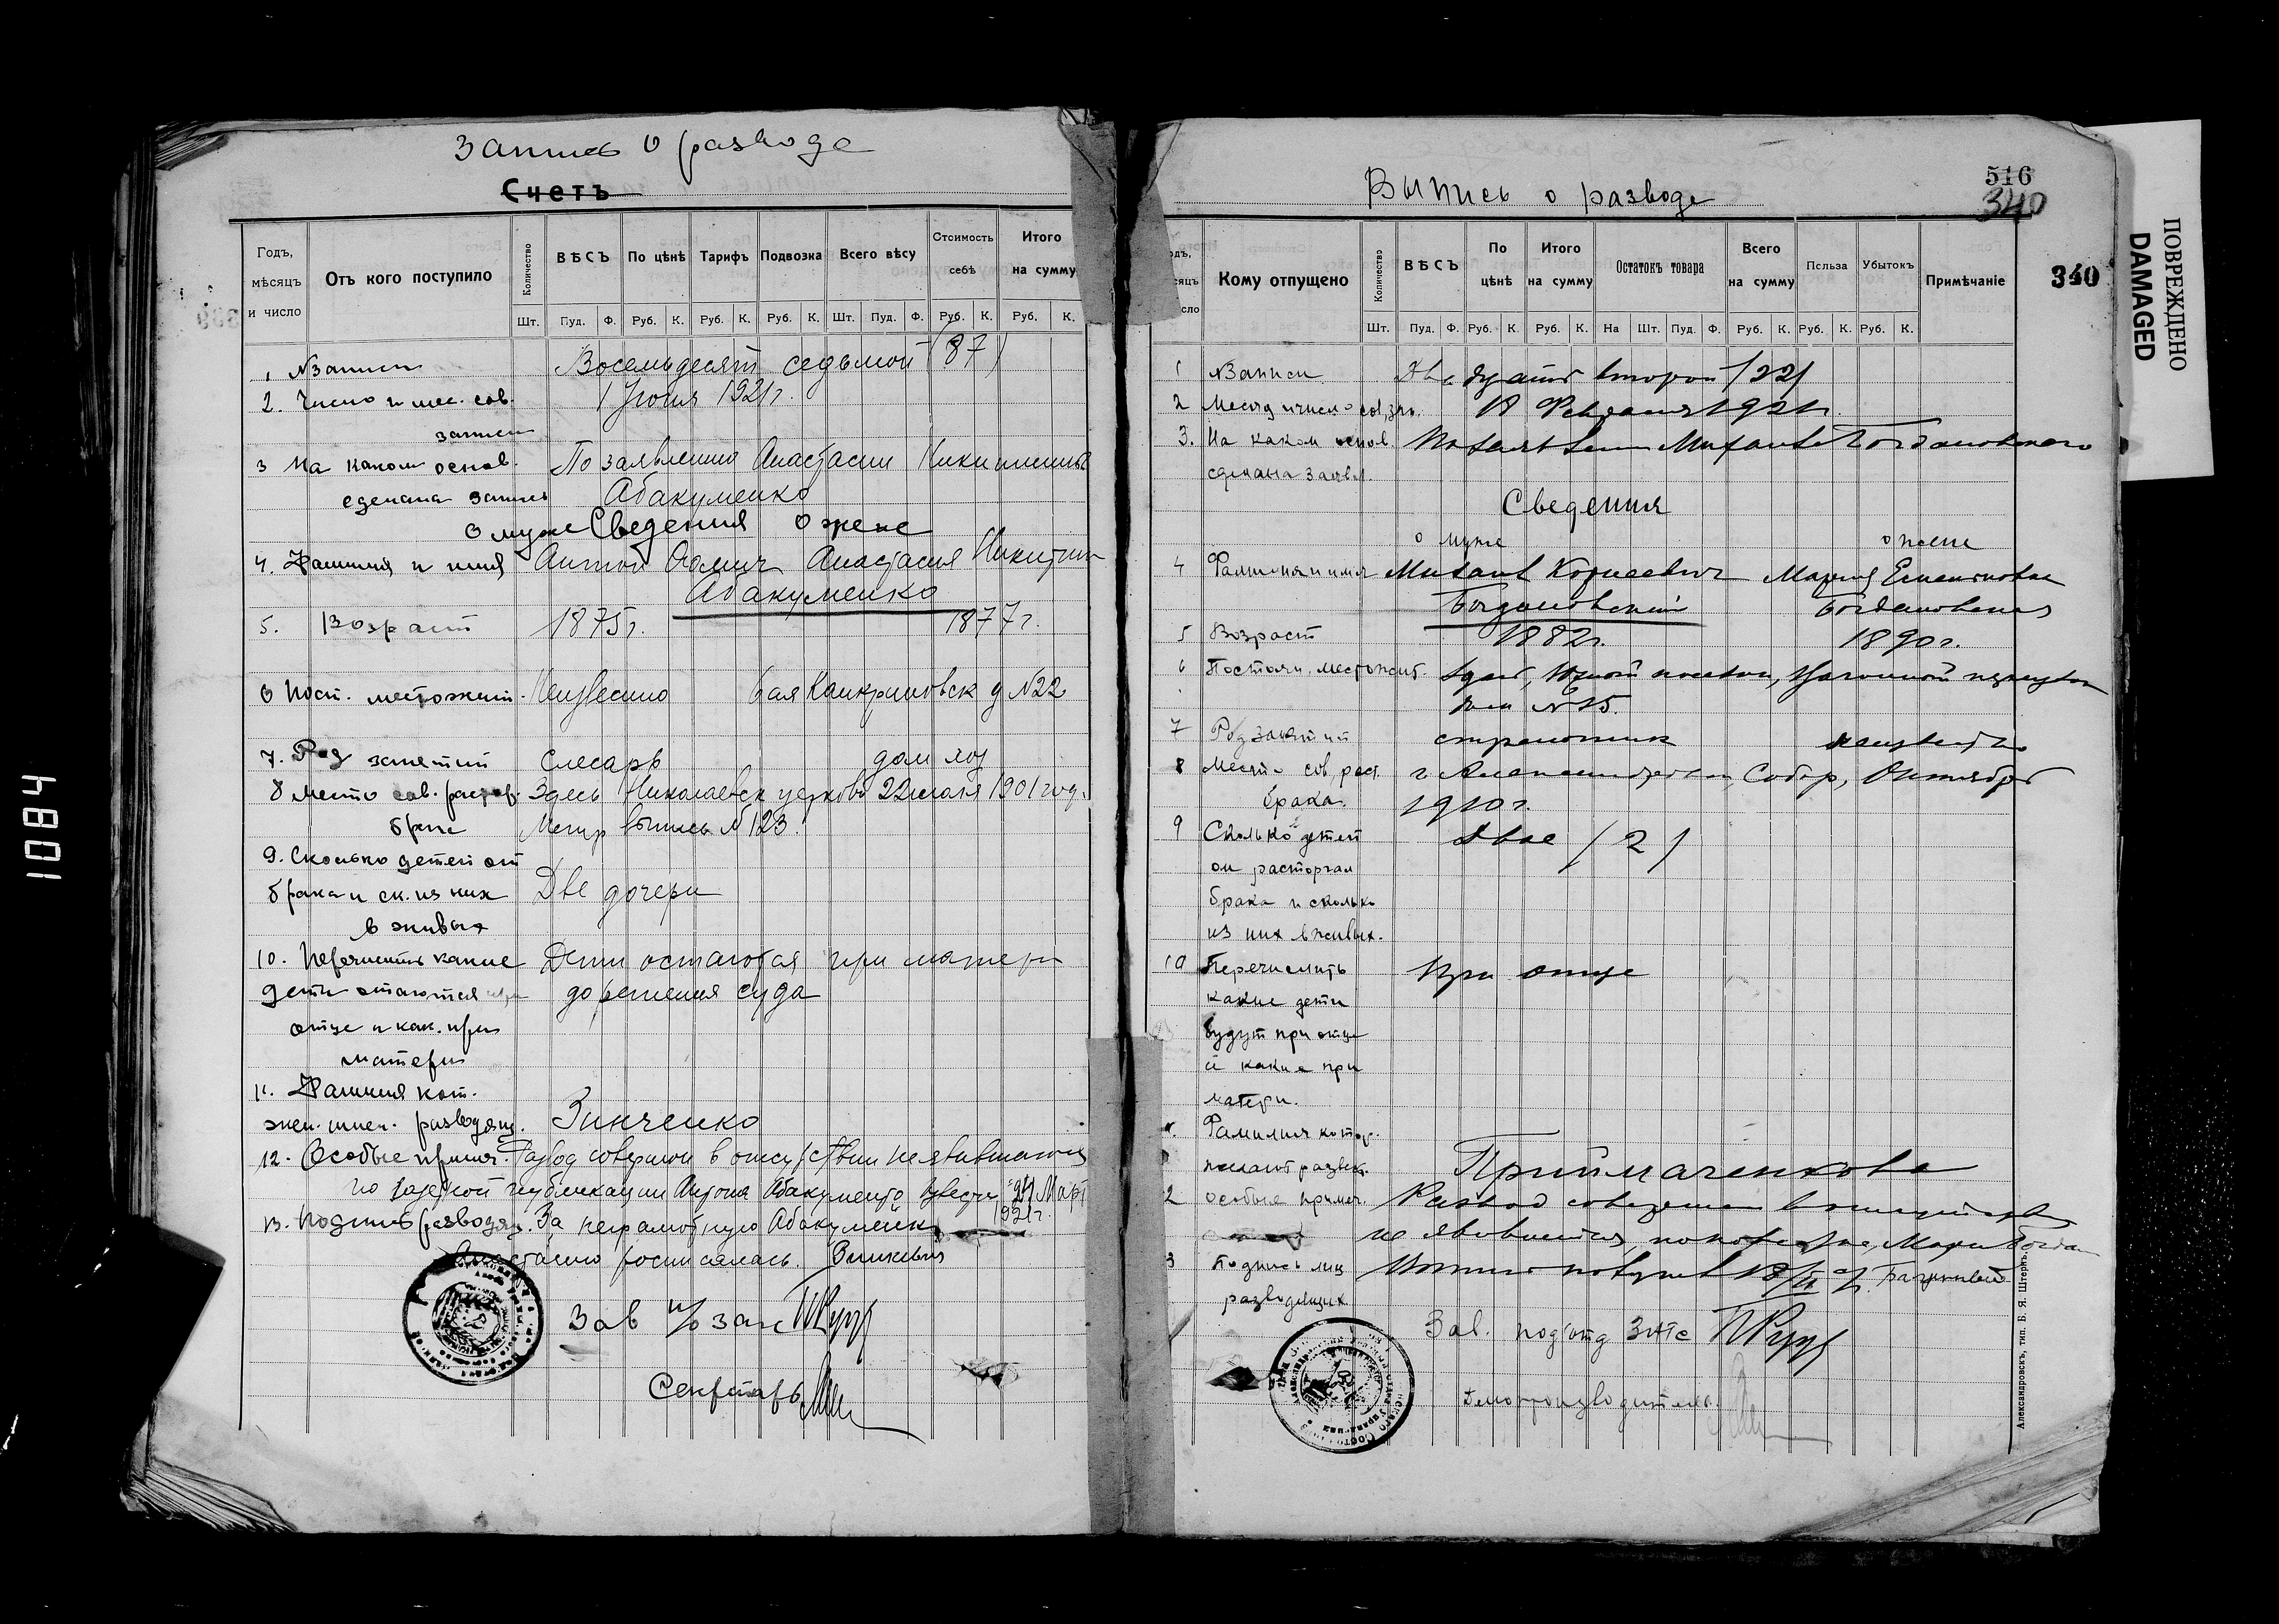 Запись о разводе
Счетъ
Годъ, мѣсяцъ и число
Отъ кого поступило
Количество
ВѢСЪ
По цѣнѣ
Тарифъ
Подвозка
Всего вѣсу
Стоимость себѣ
Итого на сумму
Шт. Пуд. Ф. Руб. К. Руб. К. Руб. К. Шт. Пуд. Ф. Руб. К. Руб. К.
1 № записи Восемьдесят седьмой (87)
2. Число и мес. сов. 1 Июня 1921 г.
записи
3 На каком основ. По заявлению Анастасии Никитишны
сделана запись Абакуменко
О муже Сведения О жене
4. Фамилия и имя Антон Анастасия Никитин
Абакуменко
5. Возраст 1875 г. 1877 г.
6 Пост. местожит. Неизвестно д №22
7. Род занятий Слесарь дом хоз
8 Место сов. расторг. Здесь Николаевск церковь 1901 год.
брака Метр выпись № 123.
9. Сколько детей от
брака и ск. из них Две дочери
в живых
10. Перечислить какие Дети остаются при матери
дети остаются при до решения суда
отце и как. при
матери
11. Фамилия кот.
жел. имен. разводящ. Зинченко
12. Особые примеч. Развод совершон в отсутствии неявившагося
по газетной публикации Антона Абакуменко Март
1921 г.
13. Подпись разводящ. За неграмотную Абакуменко
росписалась.
Зав п/о загс
Секретарь
Выпись о разводе
516
340
340
Кому отпущено
Количество
ВѢСЪ
По цѣнѣ
Итого на сумму
Остатокъ товара
Всего на сумму
Польза
Убытокъ
Примѣчаніе
Шт. Пуд. Ф. Руб. К. Руб. К. На Шт. Пуд. Ф. Руб. К. Руб. К. Руб. К.
1 № Записи Двадцать второй (22)
2 Месяц и число сов. зап. 18 Февраля 1921 г.
3. На каком основ. Михаила Богдановского
сделана заявл.
Сведения
о муже о жене
4 Фамилия и имя Михаил Корнеевич Мария Емельяновна
Богдановский Богдановская
5 Возраст 1882 г. 1890 г.
6 Постоян. местожит. Здесь, Южной поселок,
дом № 15.
7 Род занятий неизвестно
8 Место сов. раст. г. Александровск, Собор, Октября
брака. 1910 г.
9 Сколько детей Двое (2)
от расторгал
брака и сколько
из них в живых.
10 Перечислить При отце
какие дети
будут при отце
и какие при
матери.
Фамилия котор.
желают развед. Приймаченкова
особые примеч. Развод совершен в отсутствии
не явившейся по повестке, Марии
Подпись лиц
разводящих
Зав. подотд ЗАГС
Делопроизводитель
Александровскъ, тип. Б. Я. Штернъ.
ПОВРЕЖДЕНО
DAMAGED
1084